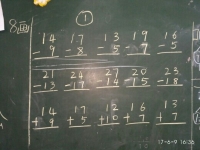 ①
14 17 13 19 16
- 9 - 8 - 5 - 7 - 5
21 24 27 20 23
- 13 - 17 - 14 - 15 - 18
14 17 12 16 13
+ 9 + 5 + 10 + 7 + 7
17-6-9 16:36